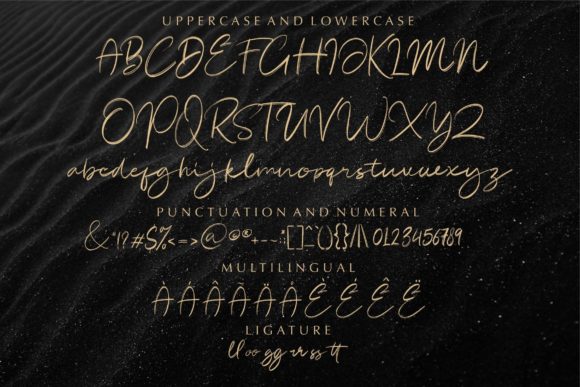 UPPERCASE AND LOWERCASE
ABCDEFGHIJKLMN
OPQRSTUVWXYZ
abcdefghijklmnopqrstuvwxyz
PUNCTUATION AND NUMERAL
0123456789
MULTILINGUAL
ÀÁÂÃÄÅÈÉÊË
LIGATURE
ll oo gg ss tt